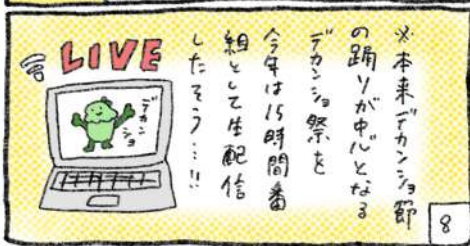 ※本来デカンショ節
の踊りが中心となる
デカンショ祭を
今年は15時間番
組として生配信
したそう…!!
LIVE
デカン
ショ
8